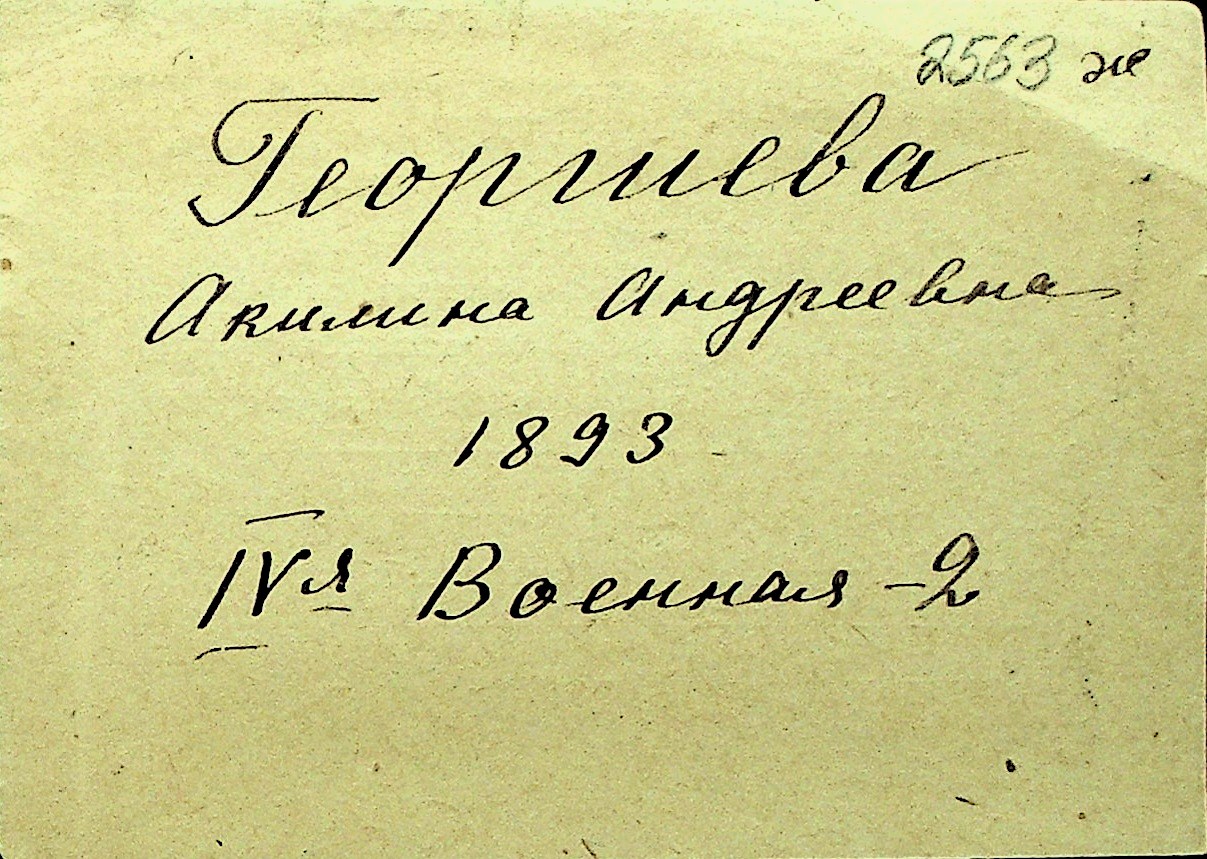 2563 же
Георгиева
Акилина Андреевна
1893
IVя Военная -2